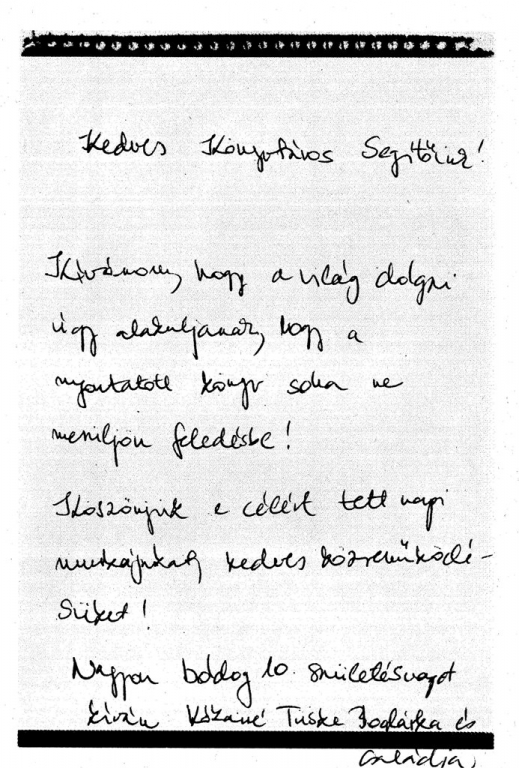 Kedves Könyvtáros Segítőink!
Kívánom, hogy a világ dolgai
úgy alakuljanak, hogy a
nyomtatott könyv soha ne
merüljön feledésbe!
Köszönjük e célért tett napi
munkájukat, kedves közreműködé-
süket!
Nagyon boldog 10. születésnapot
kíván Kőzané Tüske Boglárka és
családja,